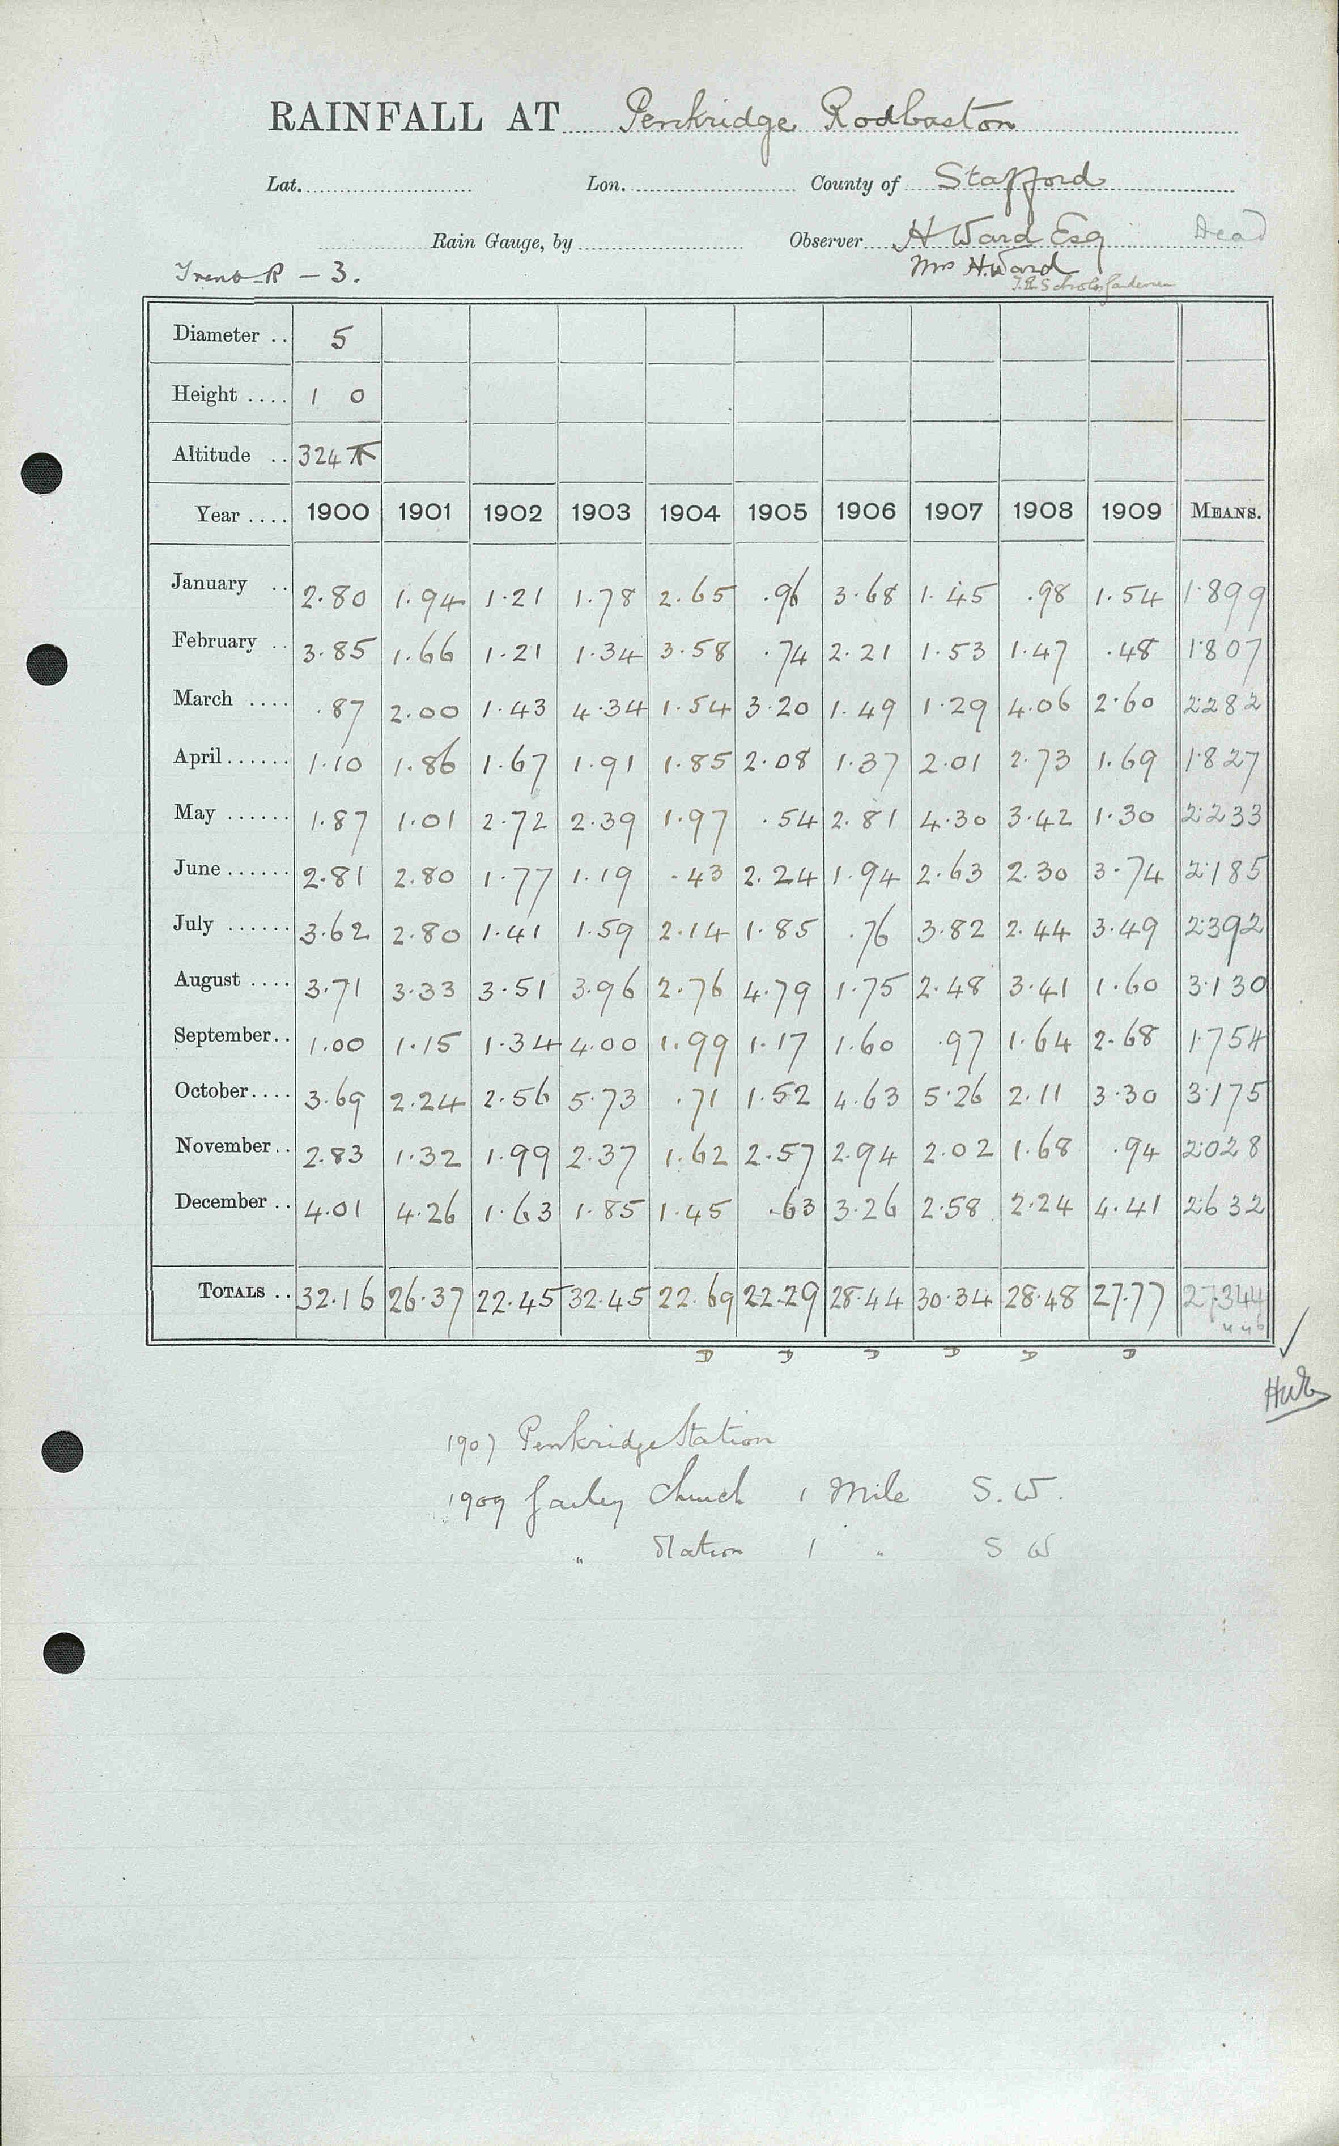 RAINFALL AT Penkridge Rodbaston
Lat. Lon. County of Stafford
Rain Gauge, by Observer H Ward Esq Dead
Trent R - 3. Mrs H. Ward
Diameter .. 5
Height .... 1 0
Altitude .. 324
Year .... 1900 1901 1902 1903 1904 1905 1906 1907 1908 1909 MEANS.
January .. 2.80 1.94 1.21 1.78 2.65 .96 3.68 1.45 .98 1.54 1.899
February .. 3.85 1.66 1.21 1.34 3.58 .74 2.21 1.53 1.47 .48 1.807
March .... .87 2.00 1.43 4.34 1.54 3.20 1.49 1.29 4.06 2.60 2.282
April...... 1.10 1.86 1.67 1.91 1.85 2.08 1.37 2.01 2.73 1.69 1.827
May ...... 1.87 1.01 2.72 2.39 1.97 .54 2.81 4.30 3.42 1.30 2.233
June ...... 2.81 2.80 1.77 1.19 .43 2.24 1.94 2.63 2.30 3.74 2.185
July ...... 3.62 2.80 1.41 1.59 2.14 1.85 .76 3.82 2.44 3.49 2.392
August .... 3.71 3.33 3.51 3.96 2.76 4.79 1.75 2.48 3.41 1.60 3.130
September.. 1.00 1.15 1.34 4.00 1.99 1.17 1.60 .97 1.64 2.68 1.754
October.... 3.69 2.24 2.56 5.73 .71 1.52 4.63 5.26 2.11 3.30 3.175
November.. 2.83 1.32 1.99 2.37 1.62 2.57 2.94 2.02 1.68 .94 2.028
December .. 4.01 4.26 1.63 1.85 1.45 .63 3.26 2.58 2.24 4.41 2.632
TOTALS .. 32.16 26.37 22.45 32.45 22.69 22.29 28.44 30.34 28.48 27.77 27.344
D D D D D D
1907 Penkridge Station
1909 Gailey Church 1 Mile S.W.
" Station 1 " S W